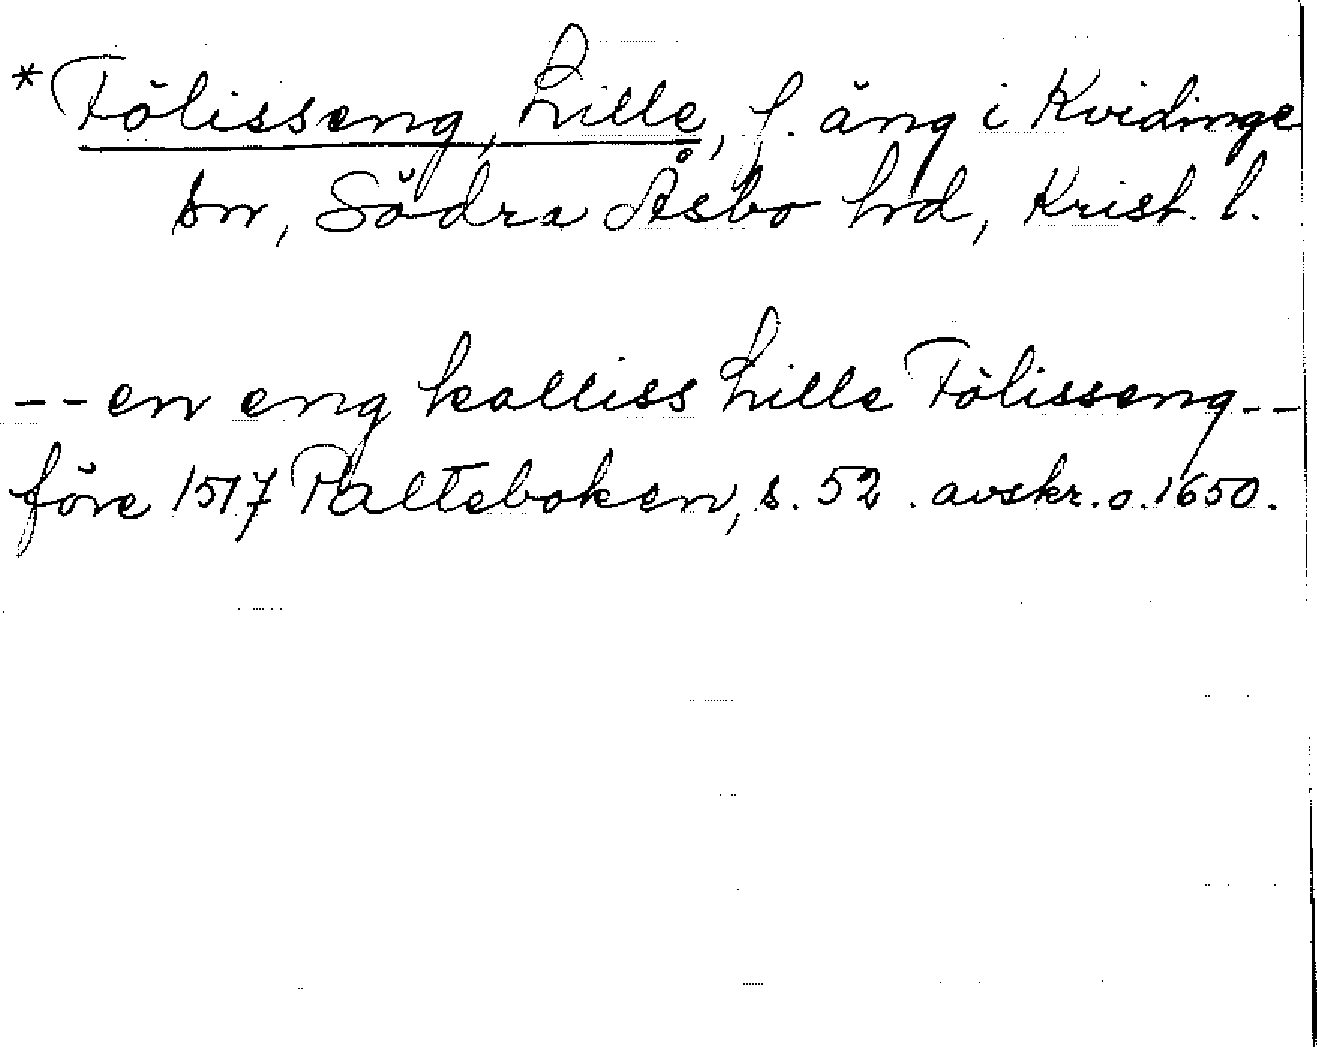 *Fölisseng, Lille, f. äng i Kvidinge
sn, Södra Åsbo hd, Krist. l.
-- en eng kalliss Lille Fölisseng --
före 1517 Palteboken, s. 52. avskr. o. 1650.